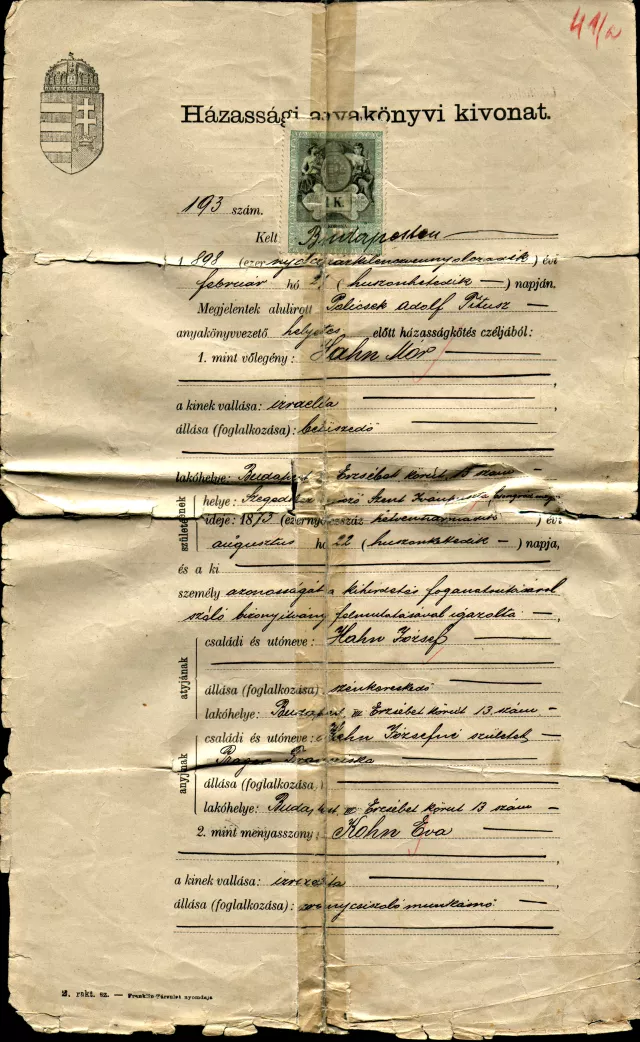 41/a
Házassági anyakönyvi kivonat.
1 K.
193 szám.
Kelt Budapesten
1898 (ezernyolczszázkilenczvennyolczadik) évi
február hó 2 (huszonhetedik —) napján.
Megjelentek alulirott Policsek Adolf Titusz —
anyakönyvvezető helyettes előtt házasságkötés czéljából:
1. mint vőlegény: Hahn Mór
a kinek vallása: izraelita
állása (foglalkozása):
lakóhelye: Budapest Erzsébet körut 13 szám —
születésének
helye: Szent
ideje: 1873 (ezernyolczszáz hetvenharmadik) évi
augusztus hó 22 (huszonkettedik —) napja,
és a ki
személy azonosságát a kihirdetés foganatositásáról
szóló bizonyitvány felmutatásával igazolta —,
atyjának
családi és utóneve: Hahn József
állása (foglalkozása) szénkereskedő
lakóhelye: Budapest, Erzsébet körut 13. szám. —
anyjának
családi és utóneve: Hahn Józsefné született
Prager Franciska
állása (foglalkozása)
lakóhelye: Budapest, Erzsébet körut 13 szám —
2. mint menyasszony: Kohn Éva
a kinek vallása: izraelita
állása (foglalkozása): aranycsiszoló munkásnő
2. rakt. sz. — Franklin-Társulat nyomdája